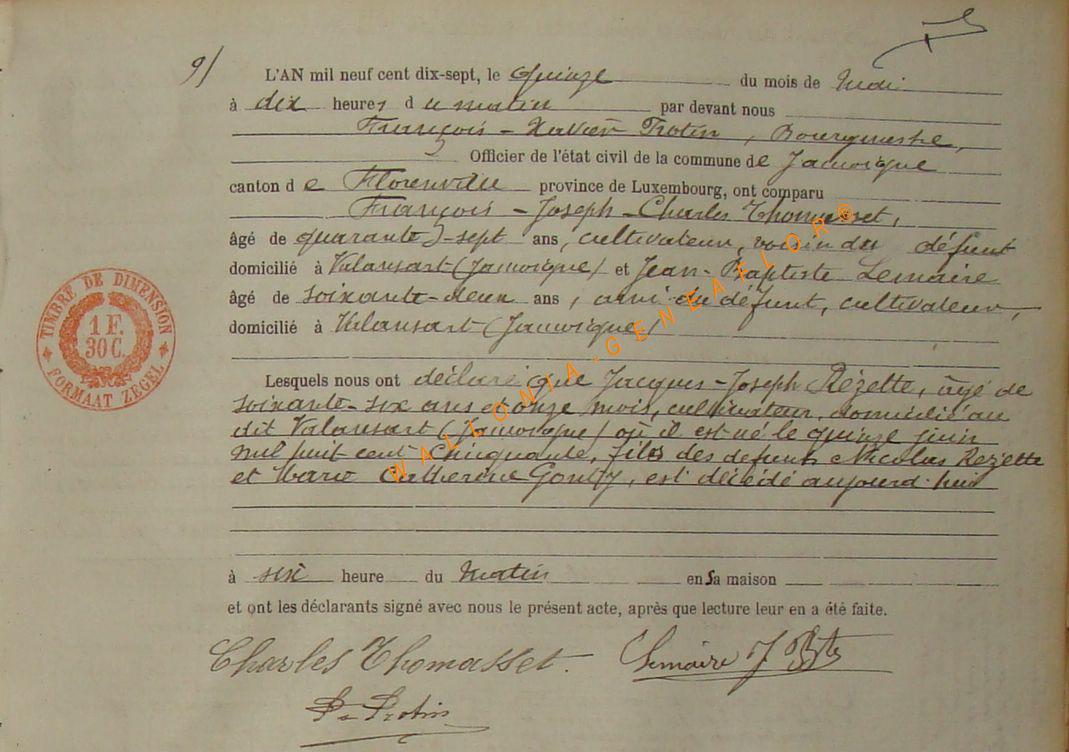 9/
L'AN mil neuf cent dix-sept, le quinze du mois de Mai
à dix heures du matin par devant nous
François-Xavier Protin, Bourgmestre,
Officier de l'état civil de la commune de Jamoigne
canton de Florenville province de Luxembourg, ont comparu
François-Joseph-Charles Thomasset,
âgé de quarante-sept ans, cultivateur, voisin du défunt
domicilié à Valansart (Jamoigne) et Jean-Baptiste Lemaire
âgé de soixante-deux ans, ami du défunt, cultivateur,
domicilié à Valansart (Jamoigne)
Lesquels nous ont déclaré que Jacques-Joseph Rézette, âgé de
soixante-six ans et onze mois, cultivateur, domicilié au
dit Valansart (Jamoigne) où il est né le quinze juin
mil huit cent cinquante, fils des défunts Nicolas Rezette
et Marie Catherine, est décédé aujourd'hui
à six heure du matin en sa maison
et ont les déclarants signé avec nous le présent acte, après que lecture leur en a été faite.
Charles Thomasset. Lemaire J Bte
Protin
TIMBRE DE DIMENSION
1 F.
30 C.
FORMAAT ZEGEL
WALLONIA-GENEALOR®